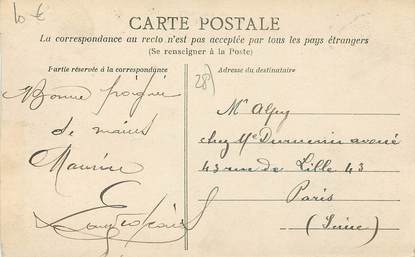 10 €
CARTE POSTALE
La correspondance au recto n'est pas acceptée par tous les pays étrangers
(Se renseigner à la Poste)
Partie réservée à la correspondance
Adresse du destinataire
28)
Bonne poignée
de mains
Maurice
Mr Alpy
chez Me
43 rue de Lille 43
Paris
(Seine)